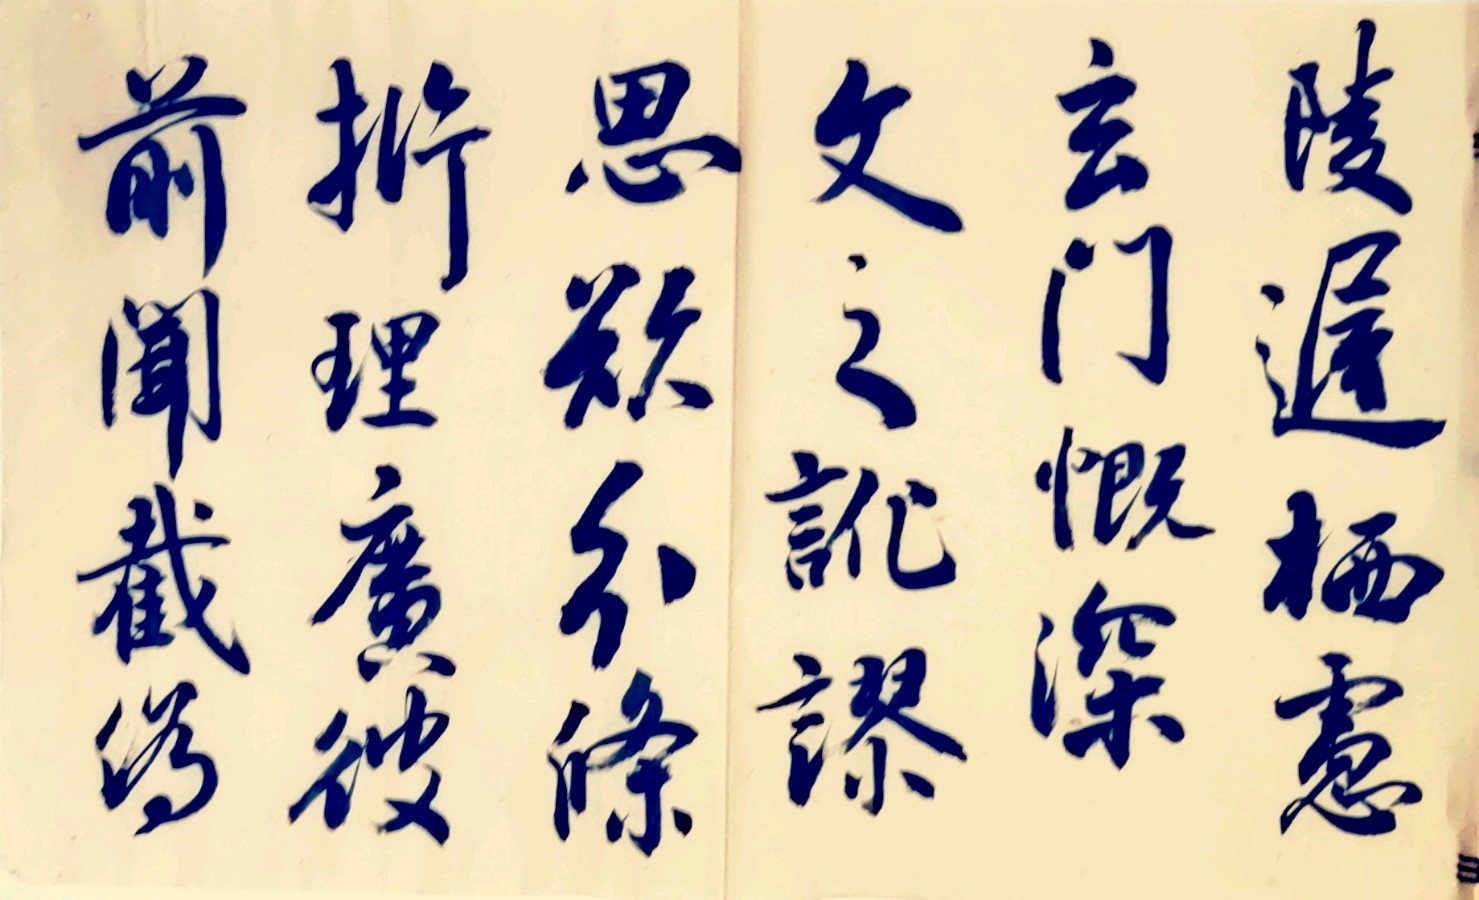 陵遲栖慮
玄門慨深
文之訛謬
思欲分條
析理廣彼
前聞截偽